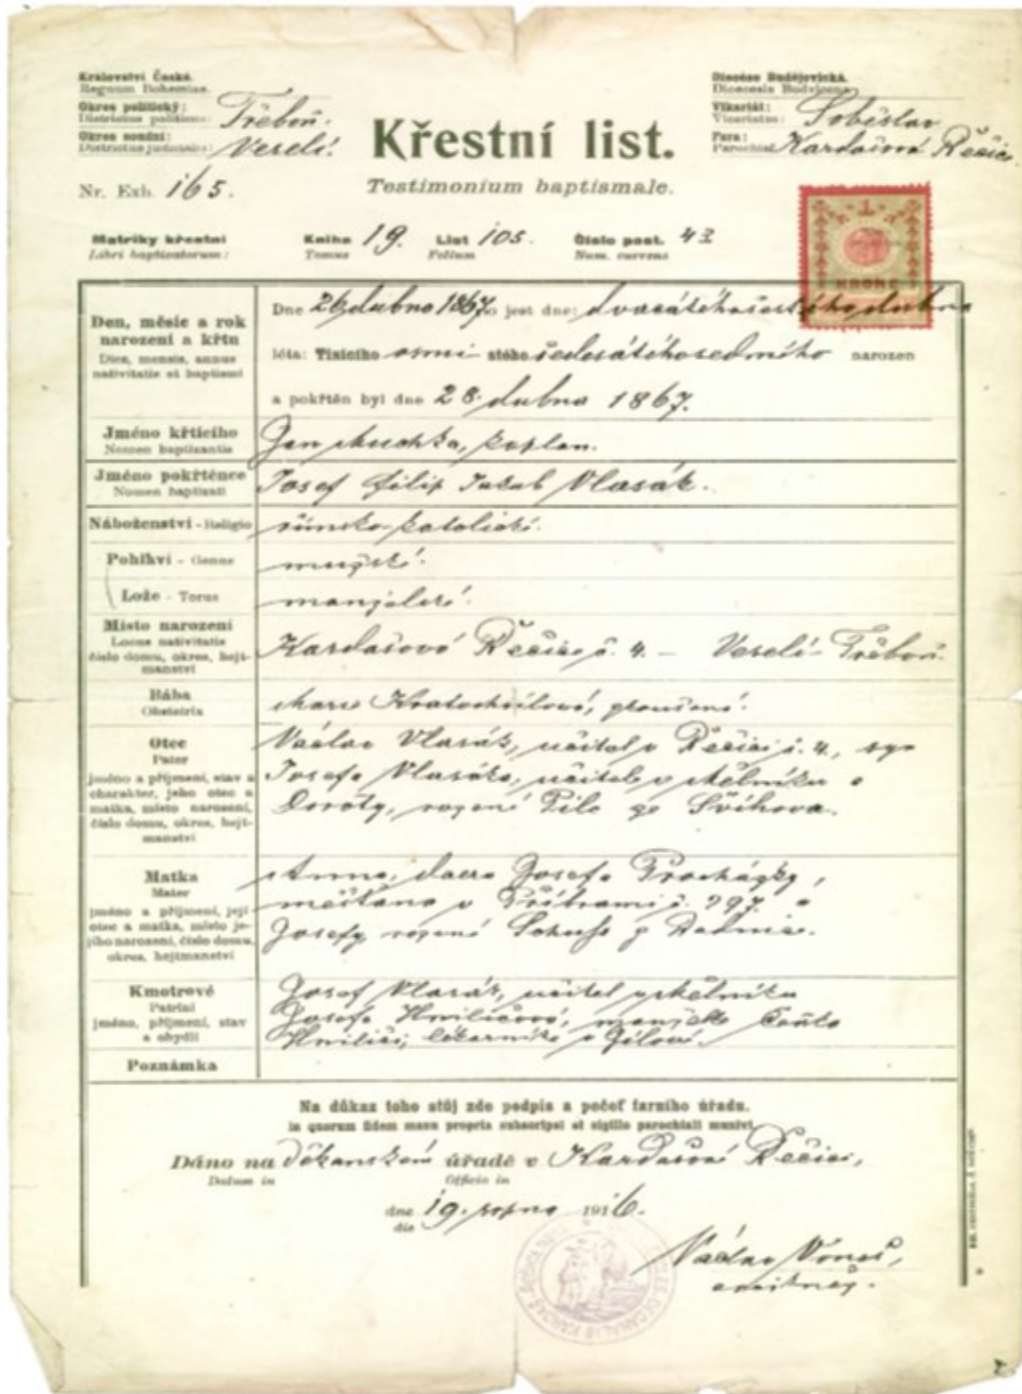 Království České.
Regnum Bohemiae.
Okres politický: Třeboň.
Districtus politicus:
Okres soudní: Veselí.
Districtus judicialis:
Nr. Exh. 165.
Diecéze Budějovická.
Dioecesis Budvicena.
Vikariát: Soběslav
Vicariatus:
Fara: Kardašova Řečice.
Parochia:
Křestní list.
Testimonium baptismale.
1
KRONE
Matriky křestní Kniha 19. List 105. Číslo post. 43
Libri baptizatorum: Tomus Folium Num. currens
Den, měsíc a rok narození a křtu
Dies, mensis, annus nativitatis et baptismi
Dne 26 dubna 1867, to jest dne: dvacátého šestého dubna
léta: Tisícího osmi- stého šedesátého sedmého narozen
a pokřtěn byl dne 28. dubna 1867.
Jméno křtícího
Nomen baptizantis
Jan Muchka, kaplan.
Jméno pokřtěnce
Nomen baptizati
Josef Filip Jakub Vlasák.
Náboženství - Religio
římsko-katolické.
Pohlaví - Genus
mužské.
Lože - Torus
manželské.
Místo narození
Locus nativitatis
číslo domu, okres, hejtmanství
Kardašova Řečice č. 4. — Veselí - Třeboň.
Bába
Obstetrix
Marie Kratochvílová, zkoušená.
Otec
Pater
jméno a příjmení, stav a
charakter, jeho otec a
matka, místo narození,
číslo domu, okres, hejt-
manství
Václav Vlasák, učitel v Řečici č. 4., syn
Josefa Vlasáka, učitele v Mělníku a
Doroty, rozené Pilc ze Švihova.
Matka
Mater
jméno a příjmení, její
otec a matka, místo je-
jího narození, číslo domu,
okres, hejtmanství
Anna, dcera Josefa Procházky,
měšťana v Příbrami č. 297. a
Josefy rozené z Radnic.
Kmotrové
Patrini
jméno, příjmení, stav
a obydlí
Josef Vlasák, učitel z Mělníka
Josefa Hniličková, manželka
lékárníka v Jílové.
Poznámka
Na důkaz toho stůj zde podpis a pečeť farního úřadu.
In quorum fidem manu propria subscripsi et sigillo parochiali munivi.
Dáno na děkanském úřadě v Kardašově Řečici,
Datum in Officio in
dne 19. srpna 1916.
die
Václav